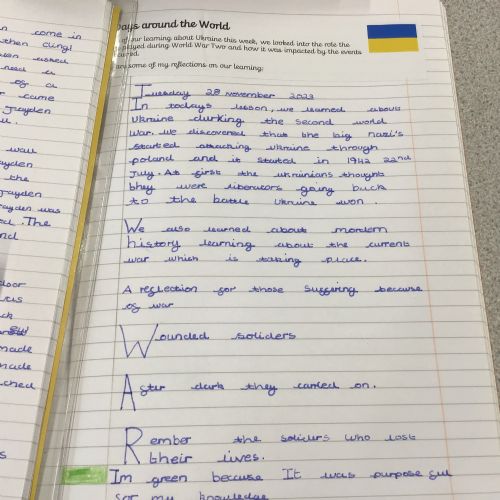 in come in
then cling!
asked
need a
of a
came
Jayden
u.
wall
ayden
the
Jayden
ayden was
ed .The
nd
door
ck
made
made
ched
s
Days around the World
of our learning about Ukraine this week, we looked into the role the
played during World War Two and how it was impacted by the events
are some of my reflections on our learning:
Tuesday 28 November 2023
In todays lesson, we learned about
Ukraine durking the second world
war. we discovered that the big nazi's
started attacking ukraine through
poland and it started in 1942 22nd
July. At first the ukrainians thought
they were liberators going back
to the battle Ukraine won.
We also learned about mordern
history learning about the current
war which is taking place.
A reflection for those suffering because
of war
Wounded soliders
After dark they carried on.
Rember the soliders who lost
their lives.
Im green because It was purpose ful
for my knowledge